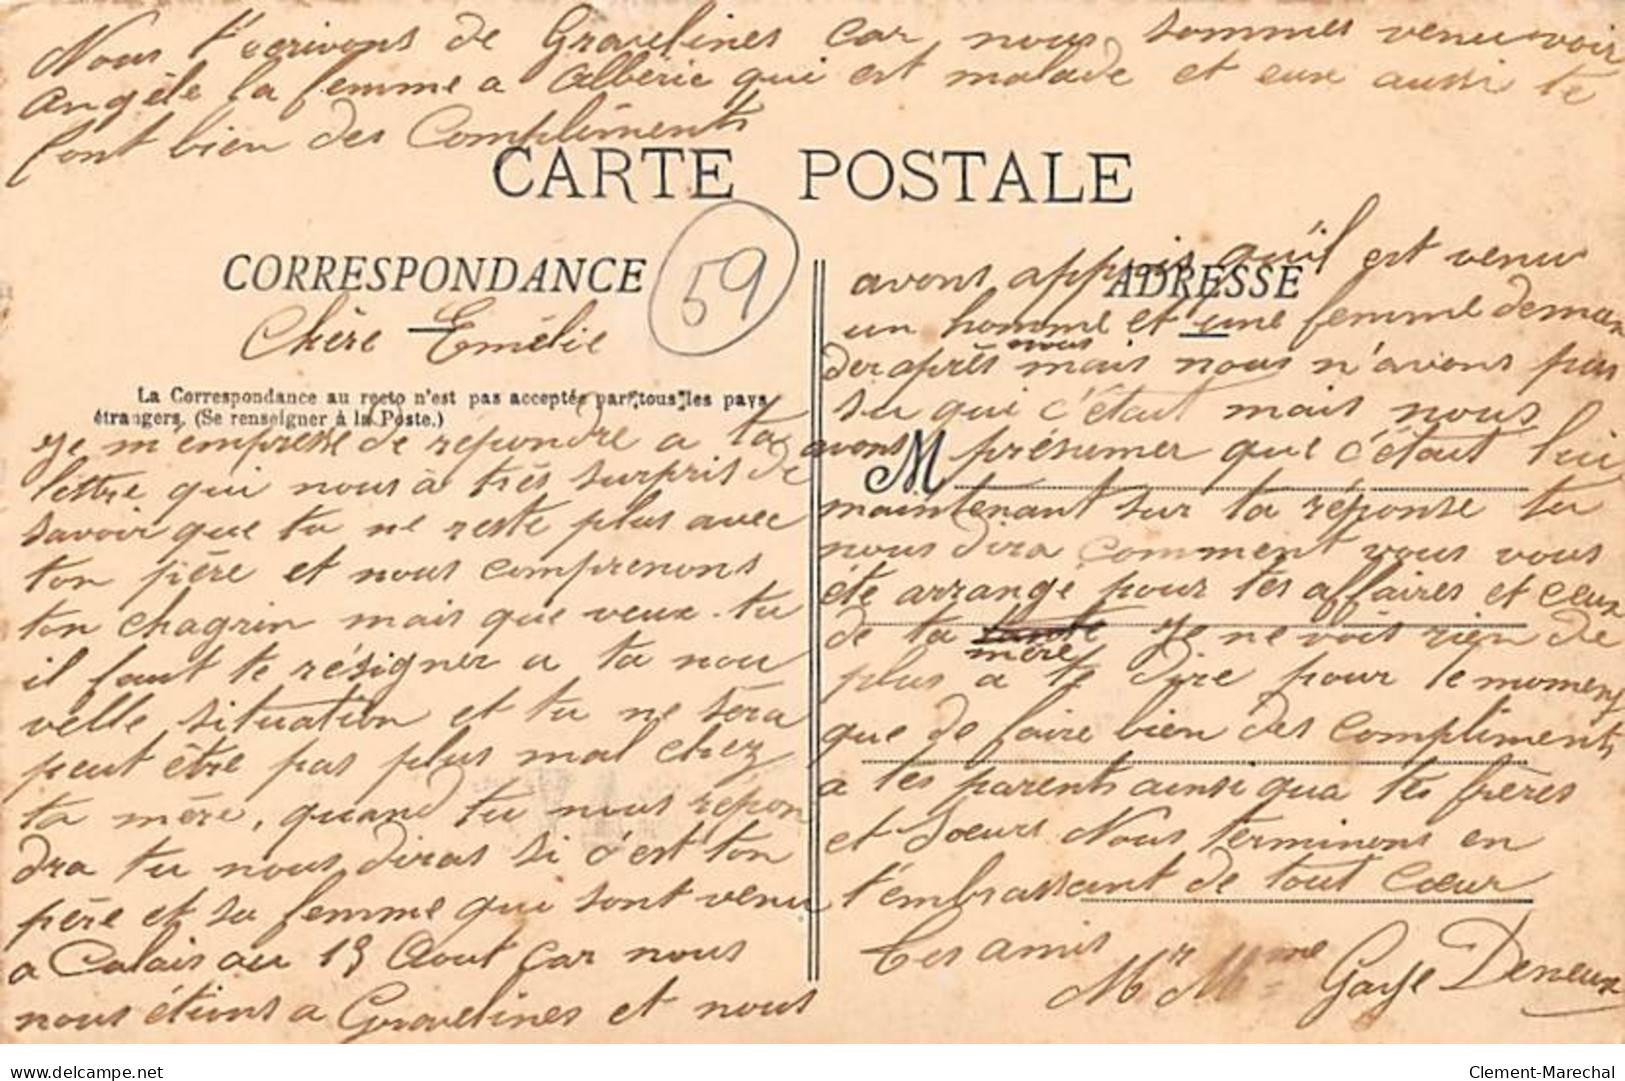 Nous t'écrivons de Gravelines car nous sommes venu voir
Angèle la femme a Albéric qui est malade et eux aussi te
font bien des Compliments
CARTE POSTALE
CORRESPONDANCE
59
Chère Emélie
La Correspondance au recto n'est pas acceptée par tous les pays
étrangers. (Se renseigner à la Poste.)
Je m'empresse de répondre a ta
lettre qui nous à très surpris de
savoir que tu ne reste plus avec
ton père et nous comprenons
ton chagrin mais que veux-tu
il faut te résigner a ta nou
velle situation et tu ne sera
peut être pas plus mal chez
ta mère, quand tu nous répon
dra tu nous diras si c'est ton
père et sa femme qui sont venu
a Calais au 15 Aout Car nous
nous étions a Gravelines et nous
ADRESSE
avons appris qu'il est venu
un homme et une femme deman
der après nous mais nous n'avons pas
su qui c'était mais nous
avons présumer que c'était lui
M
maintenant sur ta réponse tu
nous dira comment vous vous
éte arrangé pour tes affaires et ceux
de ta mère Je ne vois rien de
plus a te dire pour le moment
que de faire bien des compliments
a tes parents ainsi qua tes frères
et Soeurs Nous terminons en
t'embrassant de tout Coeur
Tes amis
Mr Mme Deneux